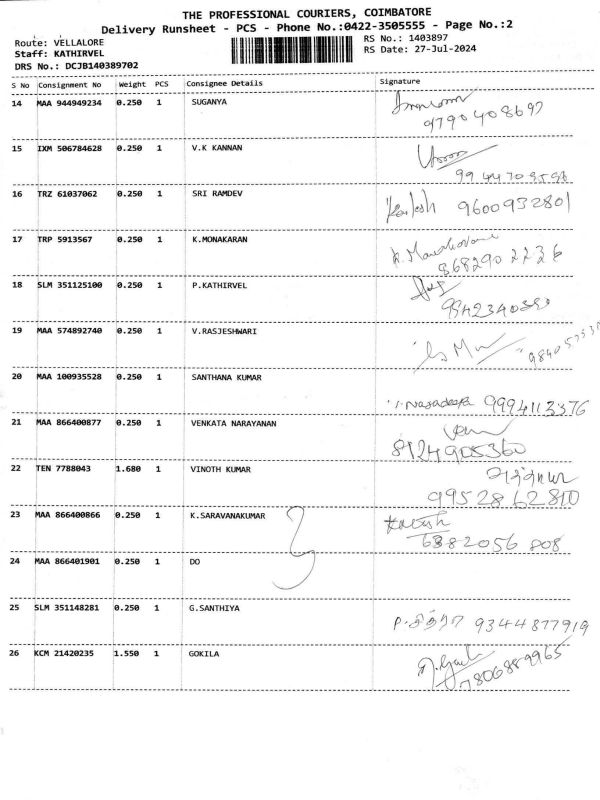 THE PROFESSIONAL COURIERS, COIMBATORE
Delivery Runsheet - PCS - Phone No.:0422-3505555 - Page No.:2
Route: VELLALORE
Staff: KATHIRVEL
DRS No.: DCJB140389702
RS No.: 1403897
RS Date: 27-Jul-2024
S No Consignment No Weight PCS Consignee Details Signature
14 MAA 944949234 0.250 1 SUGANYA
9790408697
15 IXM 506784628 0.250 1 V.K KANNAN
16 TRZ 61037062 0.250 1 SRI RAMDEV 9600932801
17 TRP 5913567 0.250 1 K.MONAKARAN
868290 2236
18 SLM 351125100 0.250 1 P.KATHIRVEL
19 MAA 574892740 0.250 1 V.RASJESHWARI
20 MAA 100935528 0.250 1 SANTHANA KUMAR
9994113376
21 MAA 866400877 0.250 1 VENKATA NARAYANAN
8124905360
22 TEN 7788043 1.680 1 VINOTH KUMAR
9952862810
23 MAA 866400866 0.250 1 K.SARAVANAKUMAR
6382056 808
24 MAA 866401901 0.250 1 DO
25 SLM 351148281 0.250 1 G.SANTHIYA
P. சித்ரா 9344877919
26 KCM 21420235 1.550 1 GOKILA
7806889965